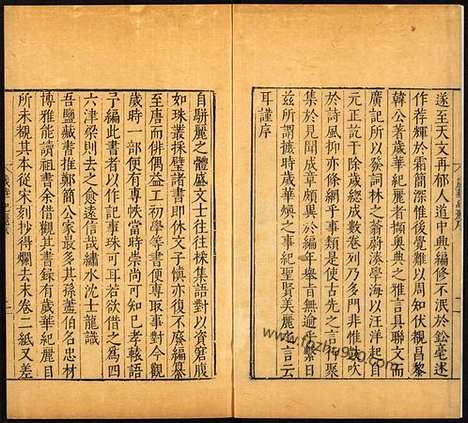 遂至天文再郁人道中興編修不泯於鉛毫述
作荐輝於霜簡深惟後覺難以周知伏覩昌黎
韓公著歲華紀麗者擷奥典之雅言具聯文而
廣記所以發詞林之蓊蔚湊學海以汪洋起於
元正訖于除歲總成數卷列乃多門非惟鼓吹
於詩風抑亦條綱乎事類是使古先之言咸
集於見聞成章頗異於編年舉皆無逾乎繫日
兹所謂摭時歲華煥之事紀聖賢美麗之言云
耳謹序
自騈麗之體盛文士往往採集語對以資窘腹
如珠叢採璧諸書即休文子慎亦復不廢編纂
至唐而俳偶益工初學等書專取事對今于
歲時一部便有專帙當時崇尚可知已孝轅語
予編此書者以作事珠可耳若欲借之爲四
六津梁則去之愈遠信哉繡水沈士龍識
吾鹽藏書推鄭簡公家最多其孫藎伯名忠材
博雅能讀祖書余借觀其書録有歲華紀麗目
所未覩其本從宋刻抄得爛去末卷二紙又差
歲華紀麗
www.fozhu920.com